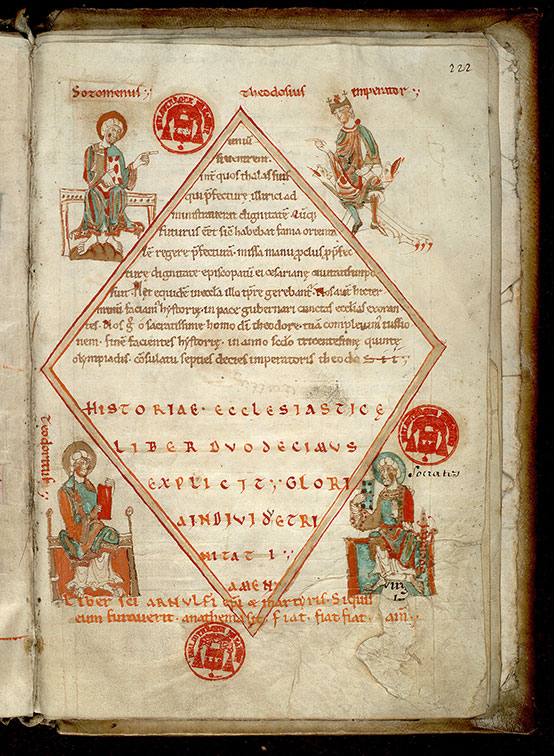 222
Sozomenus
Theodosius imperator
uentrem.
inter quos thalassius
qui prefecturae illirici ad
ministrauerat dignitatem
futurus eet sic habebat fama orientem
regere prefecturam. missa manu proclus
dignitate episcopatu ei cesarianae
sunt. Et equidem in aecla illo tpre gerebant. Nos aut hic ter
minum faciam hystorie, in pace gubernari cunctas ecclias exoran
tes. Nos g o sacratissime homo di theodore, tuam compleuim iussio
nem. finem facientes hystorie. in anno scdo tricentesime quinte
olympiadis. consulatu septies decies imperatoris theodosii
HISTORIAE ECCLESIASTICE
LIBER DUODECIMUS
EXPLICIT GLORI
A INDIVIDUE TRI
NITATI
AMEN
Theodoritus
Socrates
Liber sci ARNULFI epi & martyris. Siquis
eum furauerit anathema sit. Fiat fiat fiat. am